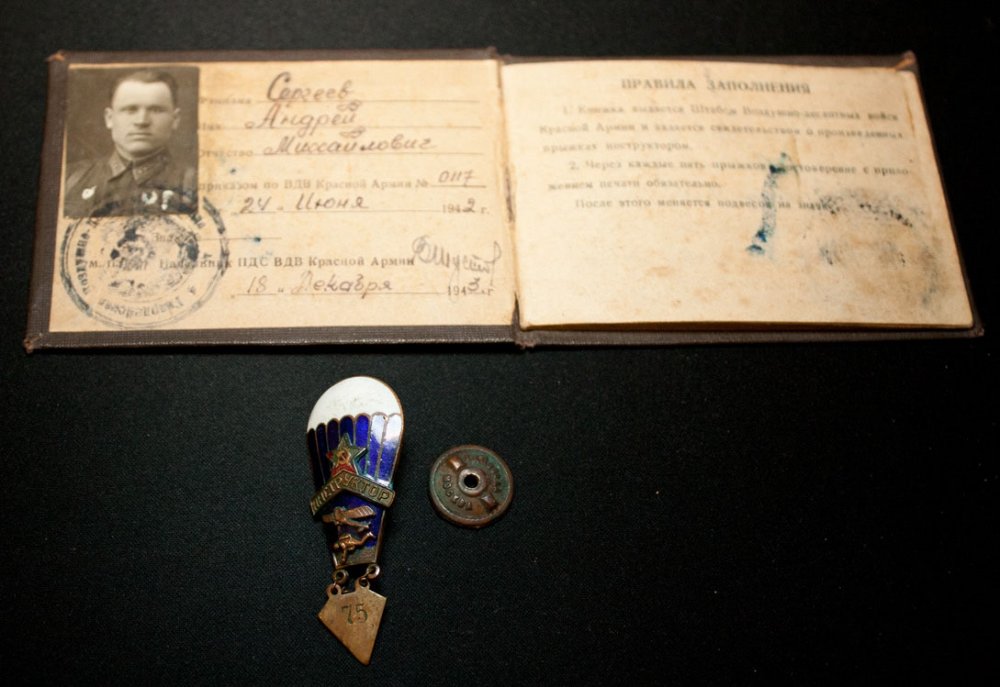 Фамилия Сергеев
Имя Андрей
Отчество Михайлович
приказом по ВДВ Красной Армии № 0117
24 " Июня 1942 г.
м. п. Начальник ПДС ВДВ Красной Армии
18 " Декабря 1943 г.
ПРАВИЛА ЗАПОЛНЕНИЯ
1. Книжка выдается Штабом Воздушно-десантных войск
Красной Армии и является свидетельством о произведенных
прыжках инструктором.
2. Через каждые пять прыжков удостоверение с прило-
жением печати обязательно.
После этого меняется подвесок на
ИНСТРУКТОР
75